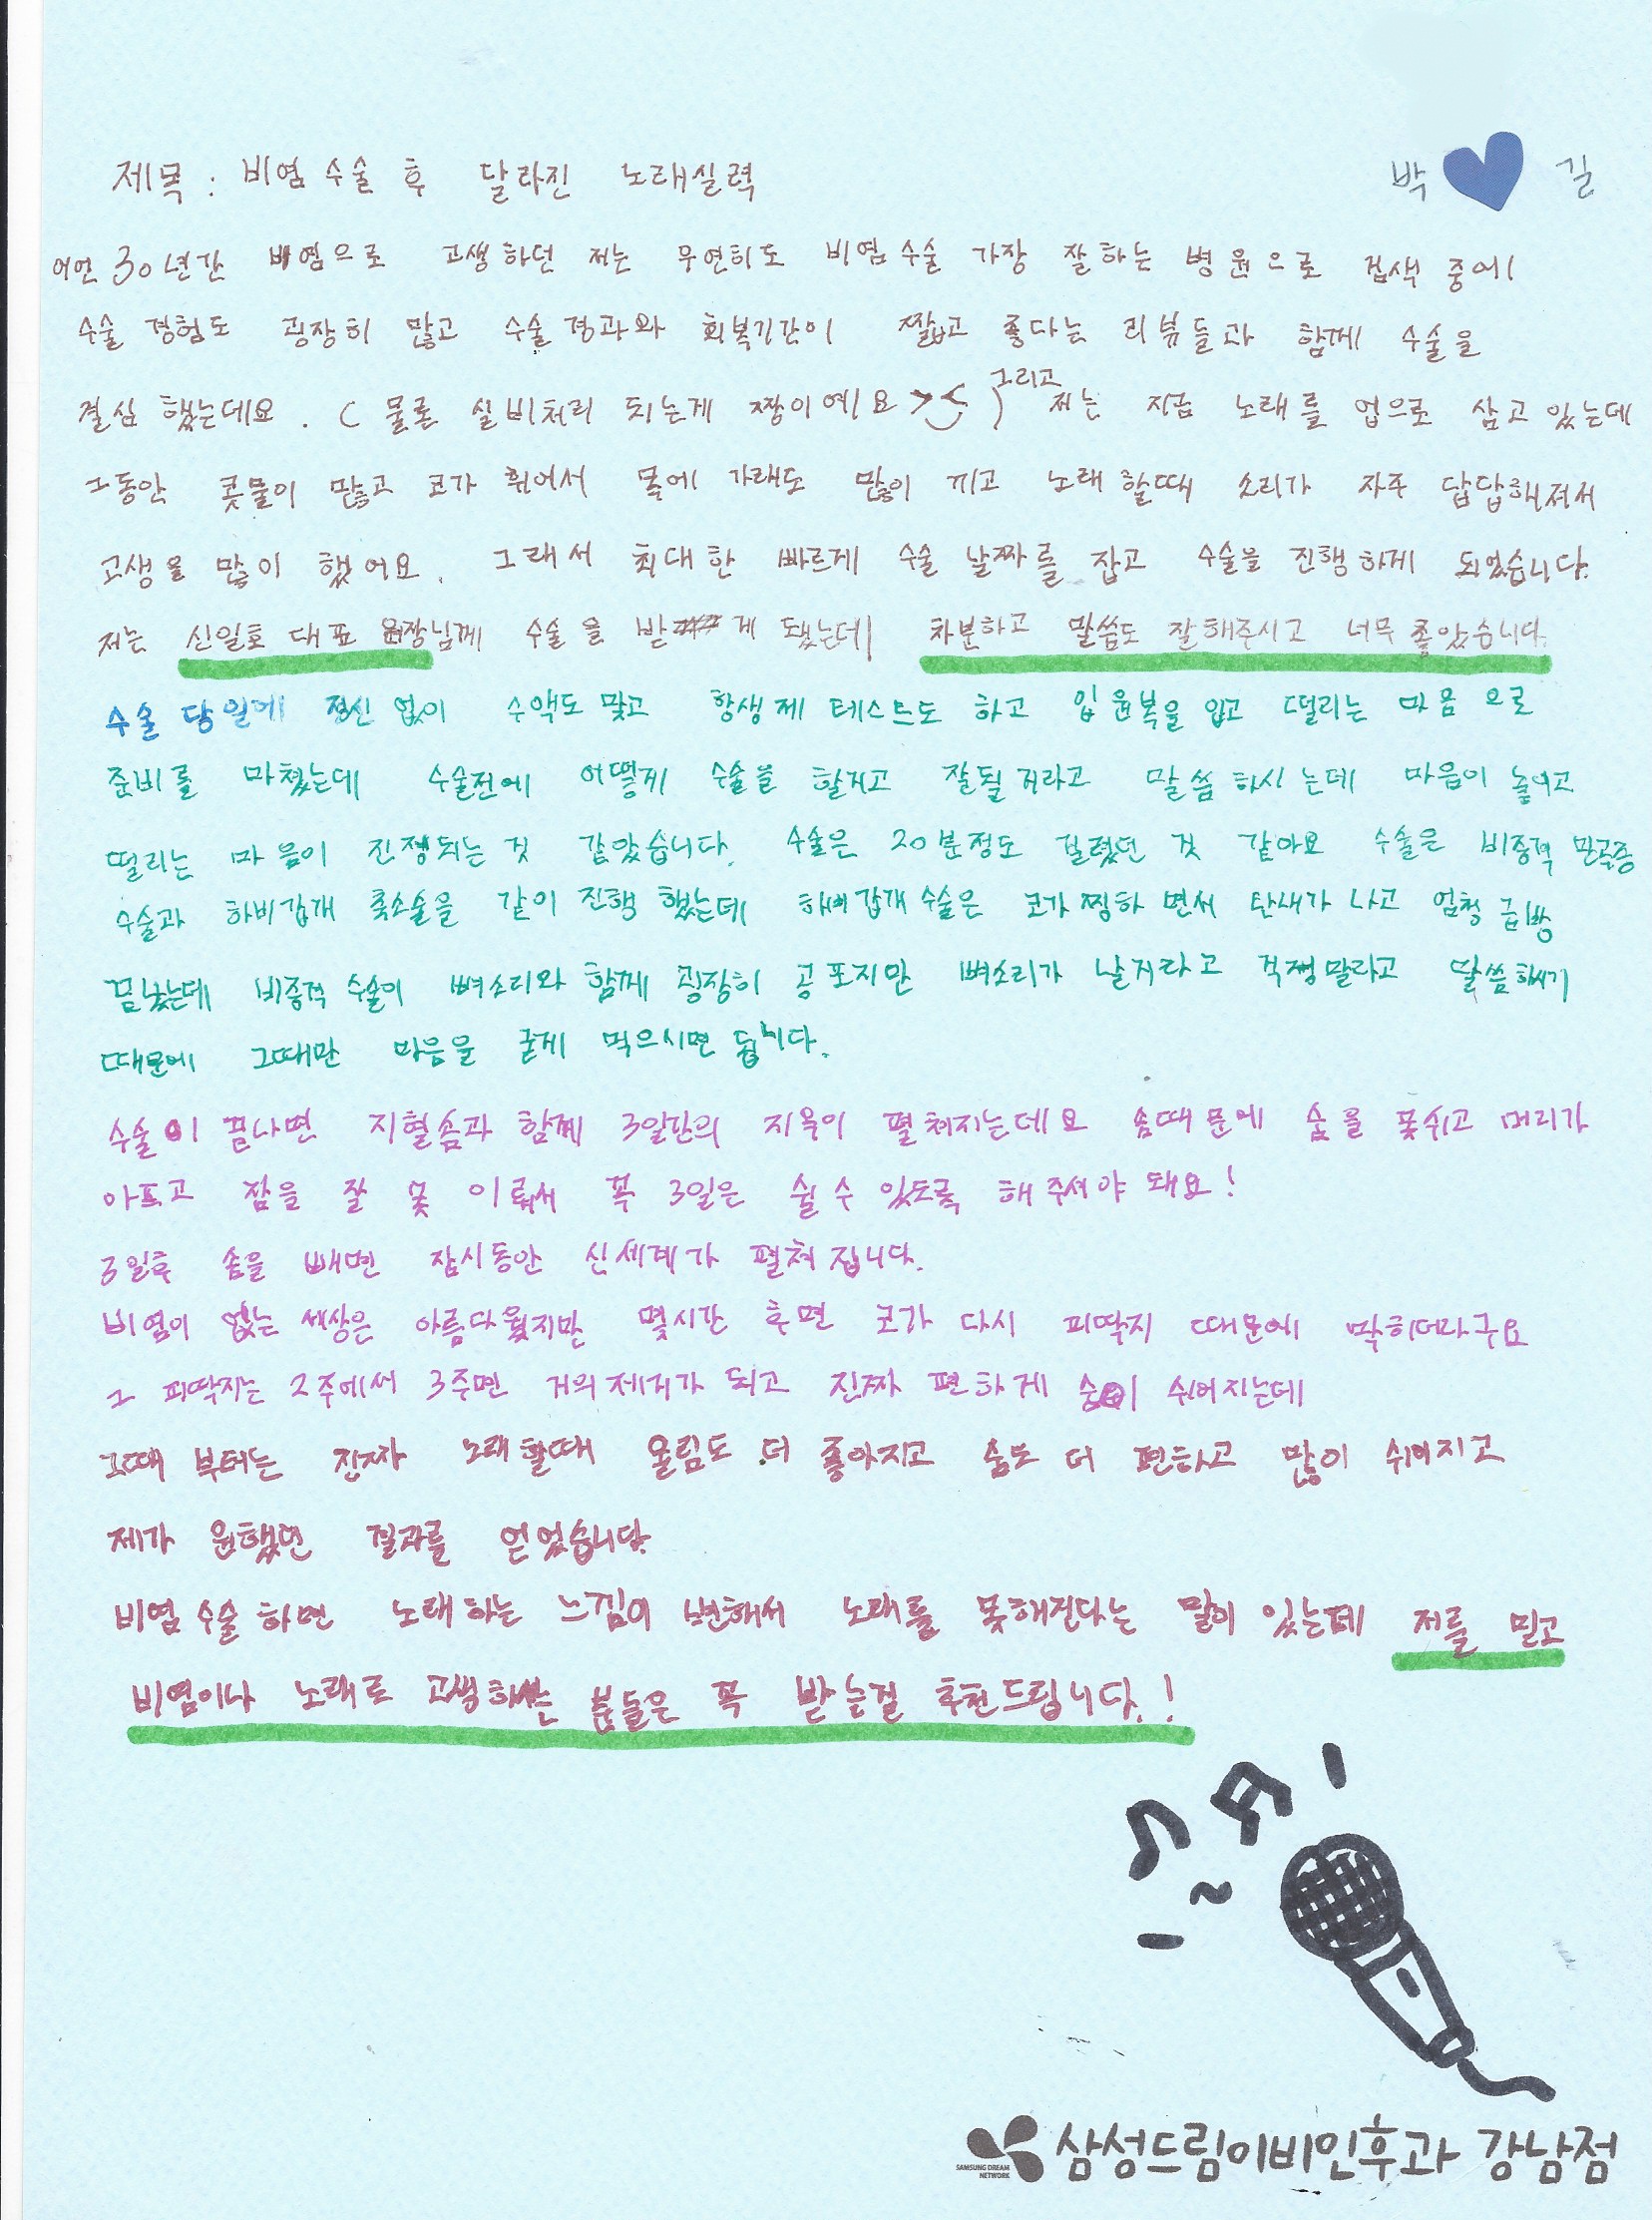 제목 : 비염 수술 후 달라진 노래실력
박 길
어언 30년간 비염으로 고생하던 저는 우연히도 비염수술 가장 잘하는 병원으로 검색 중에
수술 경험도 굉장히 많고 수술경과와 회복기간이 짧고 좋다는 리뷰들과 함께 수술을
결심 했는데요. ( 물론 실비처리 되는게 짱이예요 ) 그리고 저는 지금 노래를 업으로 삼고 있는데
그동안 콧물이 많고 코가 휘어서 목에 가래도 많이 끼고 노래 할때 소리가 자주 답답해져서
고생을 많이 했어요. 그래서 최대한 빠르게 수술 날짜를 잡고 수술을 진행하게 되었습니다.
저는 신일호 대표 원장님께 수술을 받게 됐는데 차분하고 말씀도 잘해주시고 너무 좋았습니다.
수술 당일에 정신 없이 수액도 맞고 항생제 테스트도 하고 입원복을 입고 떨리는 마음으로
준비를 마쳤는데 수술전에 어떻게 수술을 할거고 잘될거라고 말씀하시는데 마음이 놓이고
떨리는 마음이 진정되는 것 같았습니다. 수술은 20분정도 걸렸던 것 같아요 수술은 비중격 만곡증
수술과 하비갑개 축소술을 같이 진행 했는데 하비갑개 수술은 코가 찡하면서 탄내가 나고 엄청 금방
끝났는데 비중격 수술이 뼈소리와 함께 굉장히 공포지만 뼈소리가 날거라고 걱정말라고 말씀하시기
때문에 그때만 마음을 굳게 먹으시면 됩니다.
수술이 끝나면 지혈솜과 함께 3일간의 지옥이 펼쳐지는데요 솜때문에 숨을 못쉬고 머리가
아프고 잠을 잘 못 이뤄서 꼭 3일은 쉴 수 있도록 해주셔야 돼요!
3일후 솜을 빼면 잠시동안 신세계가 펼쳐집니다.
비염이 없는 세상은 아름다웠지만 몇시간 후면 코가 다시 피딱지 때문에 막히더라구요
그 피딱지는 2주에서 3주면 거의 제거가 되고 진짜 편하게 숨이 쉬어지는데
그때 부터는 진짜 노래할때 울림도 더 좋아지고 숨도 더 편하고 많이 쉬어지고
제가 원했던 결과를 얻었습니다.
비염 수술하면 노래하는 느낌이 변해서 노래를 못해진다는 말이 있는데 저를 믿고
비염이나 노래로 고생하시는 분들은 꼭 받는걸 추천드립니다.!
SAMSUNG DREAM NETWORK
삼성드림이비인후과 강남점